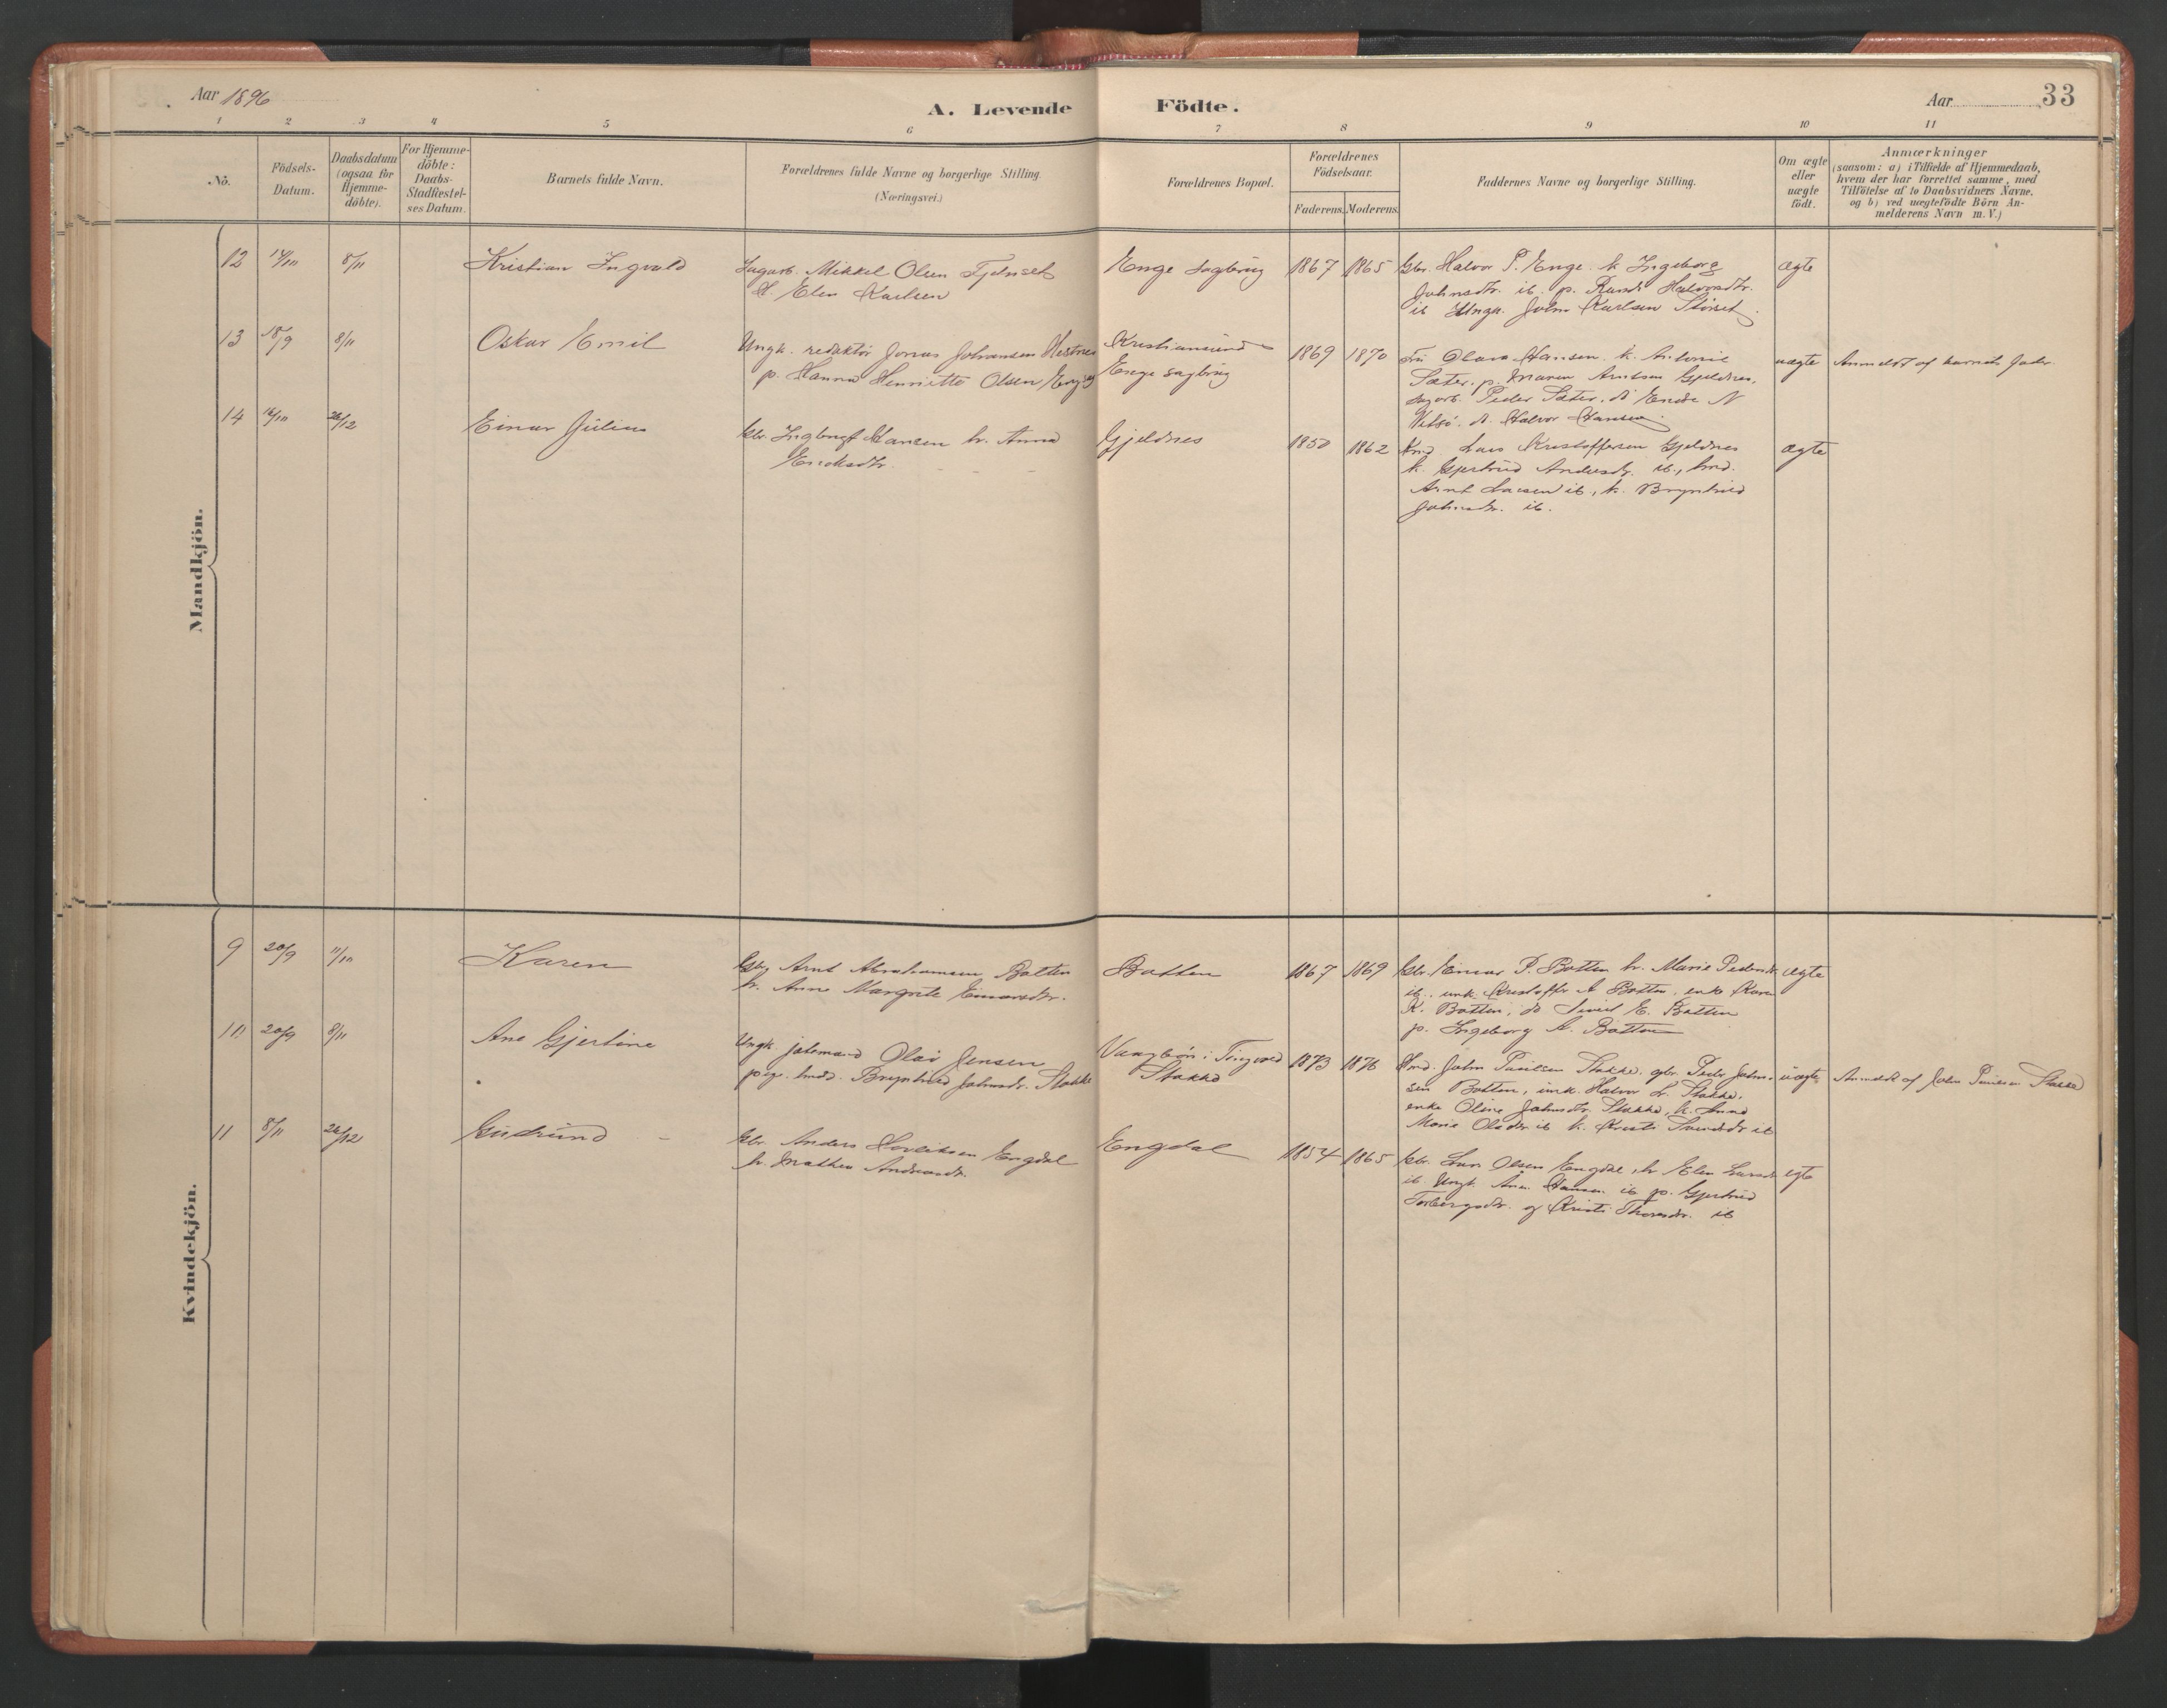 Aar 1896
A. Levende Födte.
Aar 33
1 2 3 4 5 6 7 8 9 10 11
No.
Födsels-
Datum.
Daabsdatum
(ogsaa for
Hjemme-
döbte).
For Hjemme-
döbte:
Daabs-
Stadfæstel-
ses Datum.
Barnets fulde Navn.
Forældrenes fulde Navne og borgerlige Stilling.
(Næringsvei.)
Forældrenes Bopæl.
Forældrenes
Födselsaar.
Faderens. Moderens.
Faddernes Navne og borgerlige Stilling.
Om ægte
eller
uægte
födt.
Anmærkninger
(saasom: a) i Tilfælde af Hjemmedaab,
hvem der har forrettet samme, med
Tilföielse af to Daabsvidners Navne.
og b) ved uægtefödte Börn An-
melderens Navn m. V.)
Mandkjön.
12 8/11 Kristian Ingvald
Mikkel Olsen Tjelnset
H. Elen Karlsen
Enge sagbrug
1867 1865
Gbr. Halvor P. Enge. k. Ingeborg
Johnsdtr. ib. p. Halvorsdtr.
ib Ungk. John Karlsen
ægte
13 18/9 8/11 Oskar Emil
Ungk. redaktör Jonas Johansen Hestnes
p. Hanna Henriette Olsen Enge
Kristiansund
Enge sagbrug
1869 1870
Fru Hansen. k. Antonie
Sæter. p. Maren Arntsen Gjeldnes,
Peder Sæter,
Halvor Hansen
uægte
Anmeldt af barnets fader.
14 26/12 Einar Julius
Gbr. Ingbrigt Hansen h. Anna
Ericksdtr.
Gjeldnes
1850 1862
Lars Kristoffersen Gjeldnes
k. Gjertrud Andersdtr. ib., hmd.
Arnt Larsen ib, k. Brynhild
Johnsdtr. ib.
ægte
Kvindekjön.
9 20/9 11/10 Karen
Gbr. Arnt Abrahamsen Botten
h. Anne Margrete Einarsdtr.
Botten
1867 1869
Gbr. Einar P. Botten h. Marie Pedersdtr.
ib., unk. Kristoffer A Botten, enke Karen
K. Botten, do Sivert E. Botten
p. Ingeborg A. Botten
ægte
10 20/9 8/11 Ane Gjertine
Ungk. Olav Jensen
pige. Brynhild Johnsdr. Stokke
Vaagbön i Tingvold
Stokke
1873 1876
Hmd. John Paulsen Stokke. gbr. Peder John-
sen Botten, unk. Halvor Stokke,
enke Oline Johnsdtr. Stokke, k. Anne
Marie Olsdtr ib k. Kristi ib
uægte
Anmeldt af John Paulsen Stokke
11 8/11 26/12 Gudrund
Gbr. Anders Engdal
h. Mathea Andersdtr.
Engdal
1854 1865
Gbr. Lars Olsen Engdal, h. Elen Larsdtr
ib. Ungk. Hansen ib p. Gjertrud
Torbergsdtr. og Kristi Thoresdtr. ib
egte